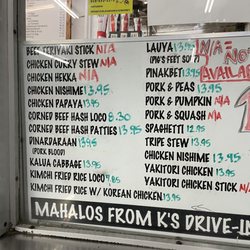 BEEF TERIYAKI STICK N/A
CHICKEN CURRY STEW N/A
CHICKEN HEKKA N/A
CHICKEN NISHIME 13.95
CHICKEN PAPAYA 13.95
CORNED BEEF HASH LOCO 8.30
CORNED BEEF HASH PATTIES 13.95
DINARDARAAN 13.95
(PORK BLOOD)
KALUA CABBAGE 13.95
KIMCHI FRIED RICE LOCO 7.85
KIMCHI FRIED RICE W/ KOREAN CHICKEN 13.95
LAUYA 13.95
(PIG'S FEET SOUP)
PINAKBET 13.95
PORK & PEAS 13.95
PORK & PUMPKIN N/A
PORK & SQUASH N/A
SPAGHETTI 12.95
TRIPE STEW 13.95
CHICKEN NISHIME 13.95
YAKITORI CHICKEN 13.95
YAKITORI CHICKEN STICK N/A
N/A=
NOT
AVAILABLE
MAHALOS FROM K'S DRIVE-IN